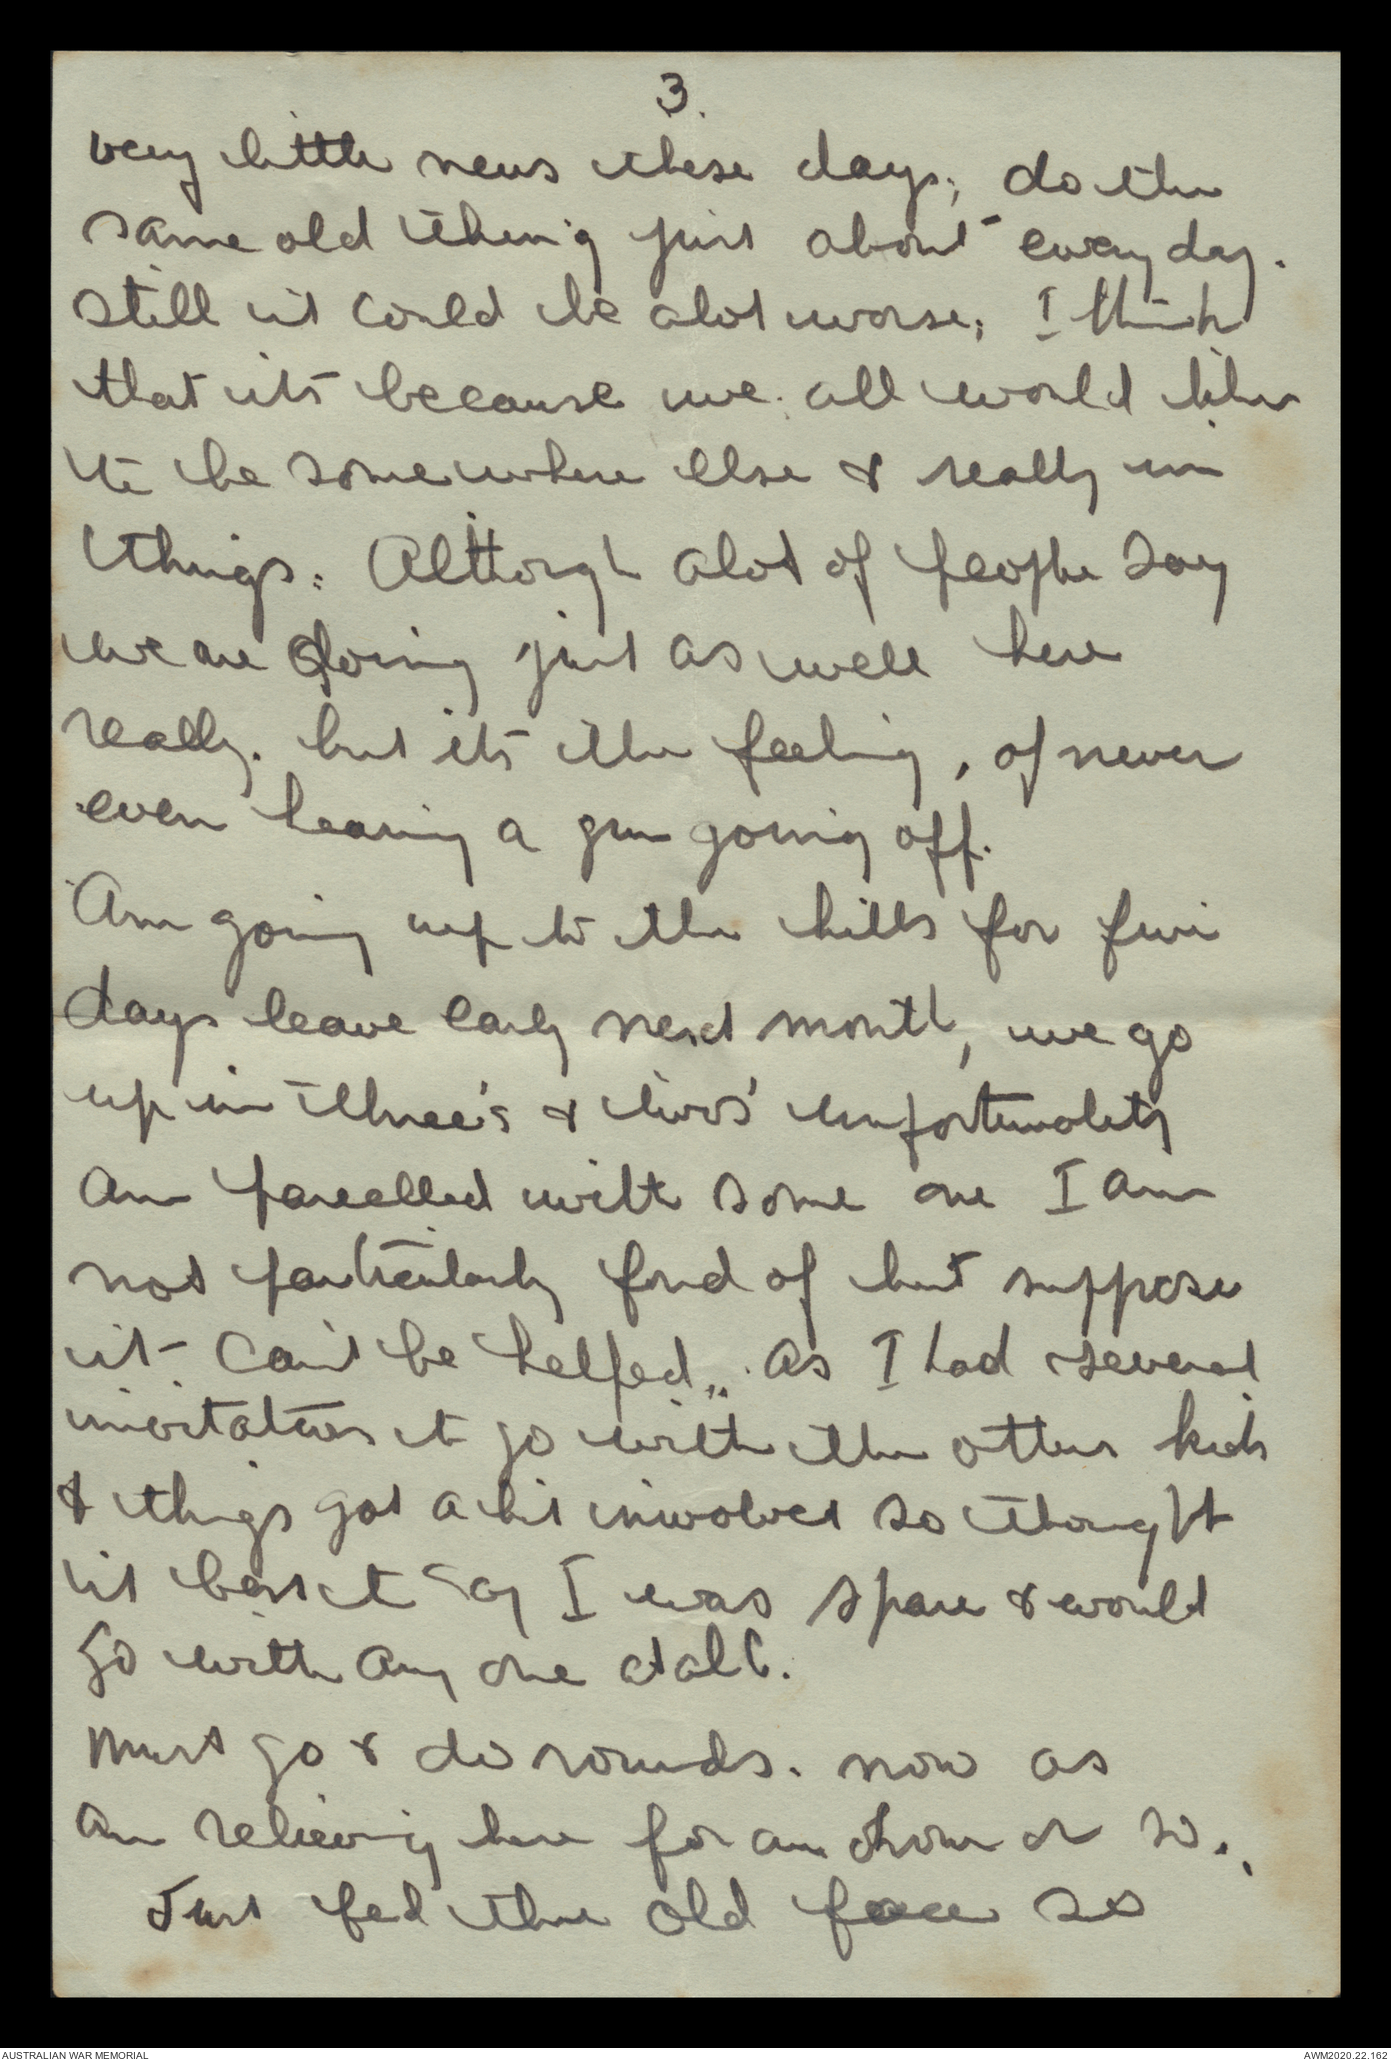 3.
very little news these days; do the
same old thing just about every day.
Still it could be alot worse; I think
that its because we all would like
to be somewhere else & really in
things. Although alot of people say
we are doing just as well here
really. but its the feeling, of never
even hearing a gun going off.
Am going up to the hills for five
days leave early next month, we go
up in three's & two's unfortunately
am parcelled with some one I am
not particularly fond of but suppose
it can't be helped,, As I had several
invitations to go with the other kids
& things got a bit involved so thought
it best to say I was spare & would
go with any one atall.
Must go & do rounds. now as
am relieving here for an hour or so.
Just fed the old face so
AUSTRALIAN WAR MEMORIAL
AWM2020.22.162